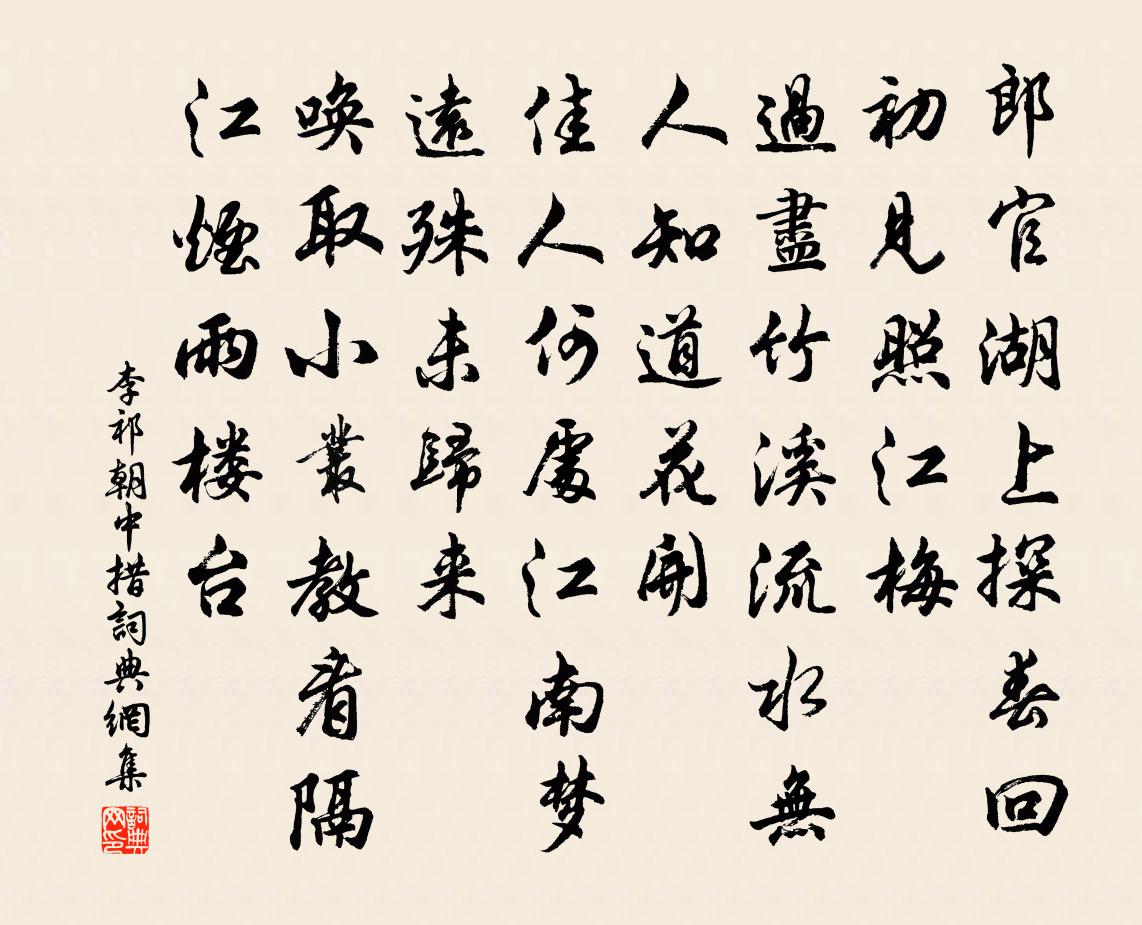 郎官湖上探春回
初見照江梅
過盡竹溪流水無
人知道花開
佳人何處江南梦
遠殊未歸来
喚取小叢教看隔
江煙雨楼台
李祁朝中措詞典網集
詞典网印